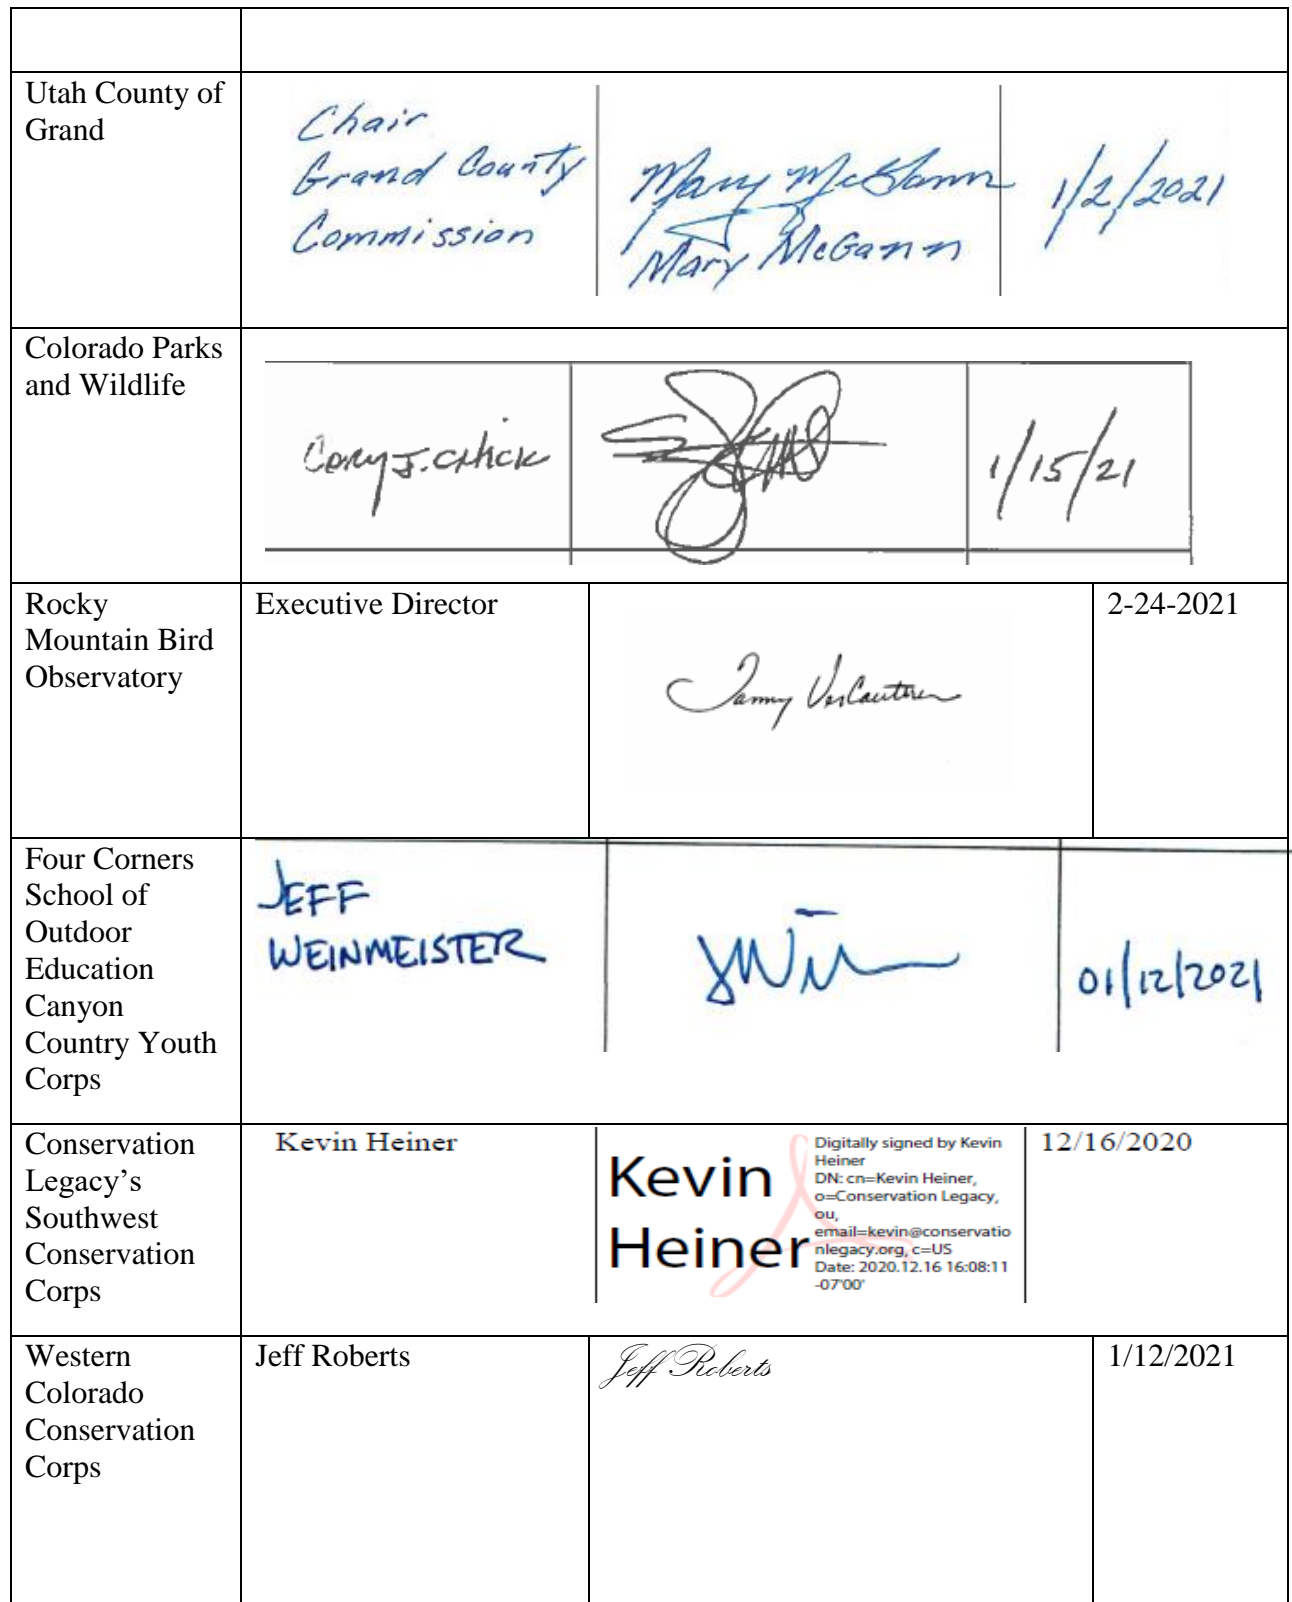 Utah County of
Grand
Chair
Grand County
Commission
Mary McGann
Mary McGann
1/2/2021
Colorado Parks
and Wildlife
Cory J. Chick
1/15/21
Rocky
Mountain Bird
Observatory
Executive Director
Tammy VerCauteren
2-24-2021
Four Corners
School of
Outdoor
Education
Canyon
Country Youth
Corps
JEFF
WEINMEISTER
01/12/2021
Conservation
Legacy’s
Southwest
Conservation
Corps
Kevin Heiner
Kevin
Heiner
Digitally signed by Kevin
Heiner
DN: cn=Kevin Heiner,
o=Conservation Legacy,
ou,
email=kevin@conservatio
nlegacy.org, c=US
Date: 2020.12.16 16:08:11
-07'00'
12/16/2020
Western
Colorado
Conservation
Corps
Jeff Roberts
Jeff Roberts
1/12/2021